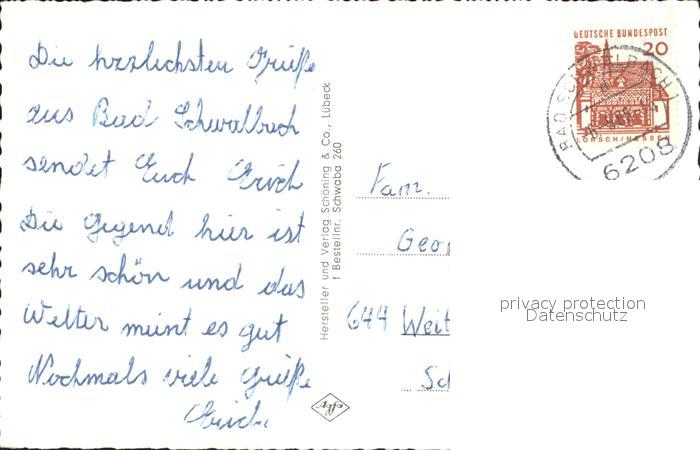 Die herzlichsten Grüße
aus Bad Schwalbach
sendet Euch Erich
Die Gegend hier ist
sehr schön und das
Wetter meint es gut
Nochmals viele Grüße
Erich.
Hersteller und Verlag Schöning & Co., Lübeck
Bestellnr. Schwaba 260
Agfa
Fam.
Geor
644 Weit
Sc
DEUTSCHE BUNDESPOST
20
LORSCH/HESSEN
BAD SCHWALBACH 1
6208
privacy protection
Datenschutz